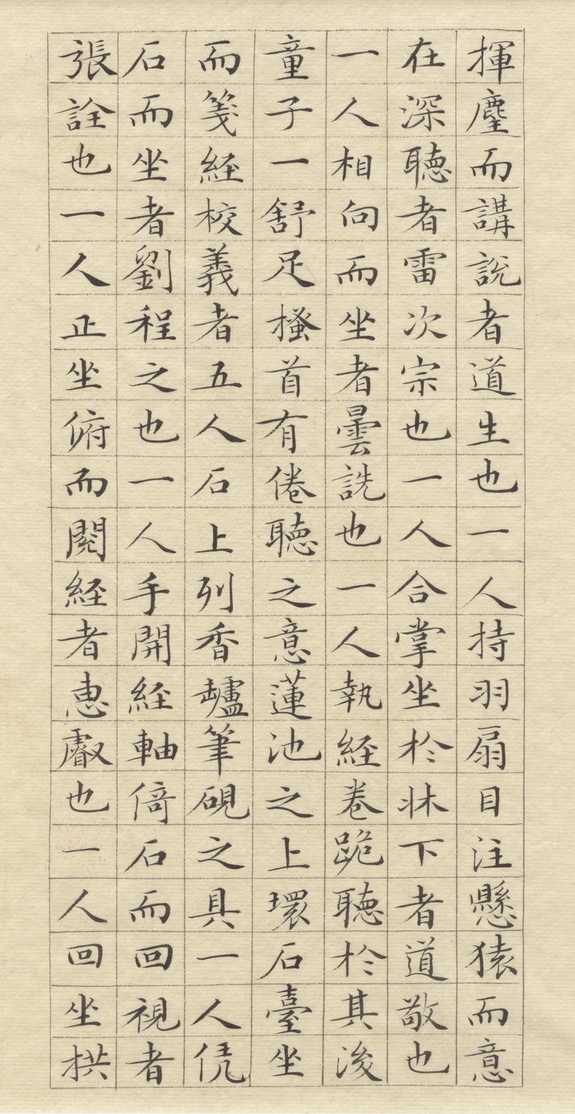 揮麈而講說者道生也一人持羽扇目注懸猿而意
在深聽者雷次宗也一人合掌坐於牀下者道敬也
一人相向而坐者曇詵也一人執經卷跪聽於其後
童子一舒足搔首有倦聽之意蓮池之上環石臺坐
而箋經校義者五人石上列香爐筆硯之具一人凭
石而坐者劉程之也一人手開經軸倚石而回視者
張詮也一人正坐俯而閱經者惠叡也一人回坐拱